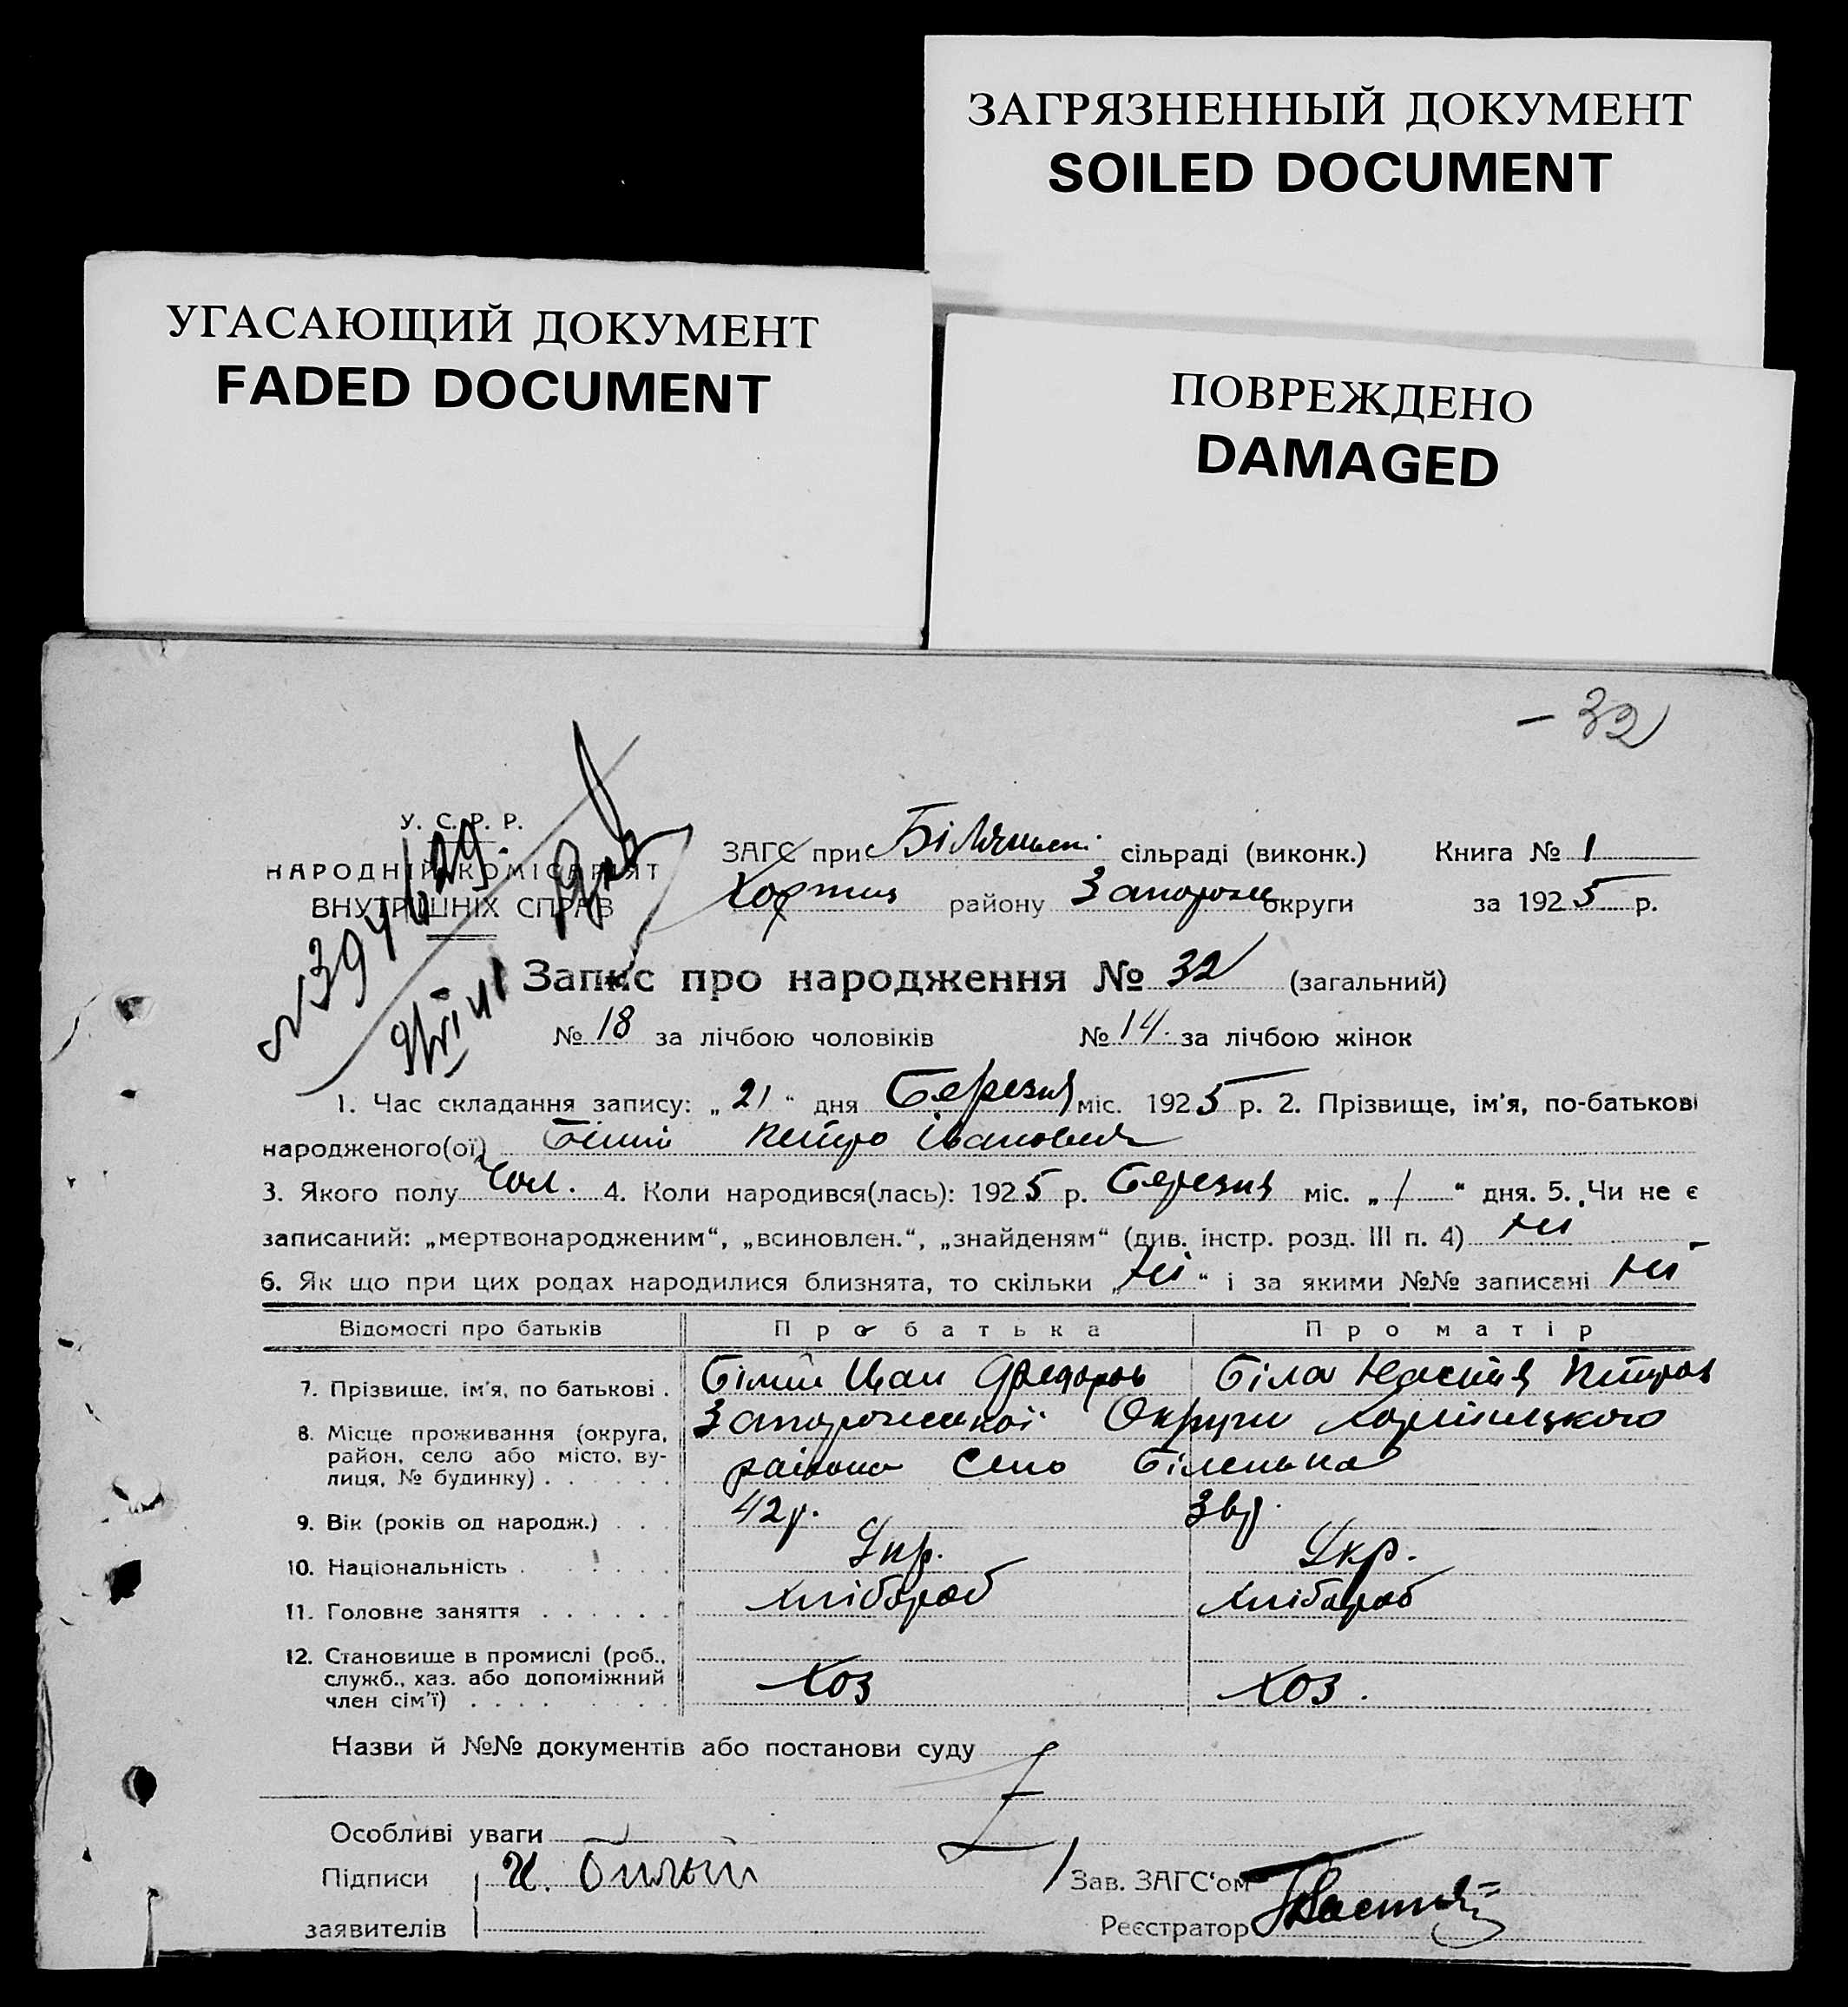 ЗАГРЯЗНЕННЫЙ ДОКУМЕНТ
SOILED DOCUMENT
УГАСАЮЩИЙ ДОКУМЕНТ
FADED DOCUMENT
ПОВРЕЖДЕНО
DAMAGED
– 32
У. С. Р. Р.
НАРОДНІЙ КОМІСАРІЯТ
ВНУТРІШНІХ СПРАВ
ЗАГС при сільраді (виконк.) Книга № 1
Хортиц району Запорожи округи за 1925 р.
Запис про народження № 32 (загальний)
№ 18 за лічбою чоловіків № 14. за лічбою жінок
1. Час складання запису: „21“ дня Березня міс. 1925 р. 2. Прізвище, ім'я, по-батькові
народженого(ої) Білий Петро Іванович
3. Якого полу Чол. 4. Коли народився(лась): 1925 р. Березня міс. „1“ дня. 5. Чи не є
записаний: „мертвонародженим“, „всиновлен.“, „знайденям“ (див. інстр. розд. III п. 4) ні
6. Як що при цих родах народилися близнята, то скільки „ні“ і за якими №№ записані ні
Відомості про батьків Про батька Про матір
7. Прізвище, ім'я, по батькові . Білий Іван Федоров Біла Настія Петров
8. Місце проживання (округа, район, село або місто, вулиця, № будинку) . . . . . . Запорожської Округи Хортицького
району Село Біленька
9. Вік (років од народж.) . . . 42 р. 36 р.
10. Національність . . . . . . Укр. Укр.
11. Головне заняття . . . . . . хлібороб хлібороб
12. Становище в промислі (роб.,
служб., хаз. або допоміжний
член сім'ї) . . . . . . . Хоз Хоз.
Назви й №№ документів або постанови суду
Особливі уваги
Підписи И. Билый Зав. ЗАГС'ом
заявителів Реєстратор